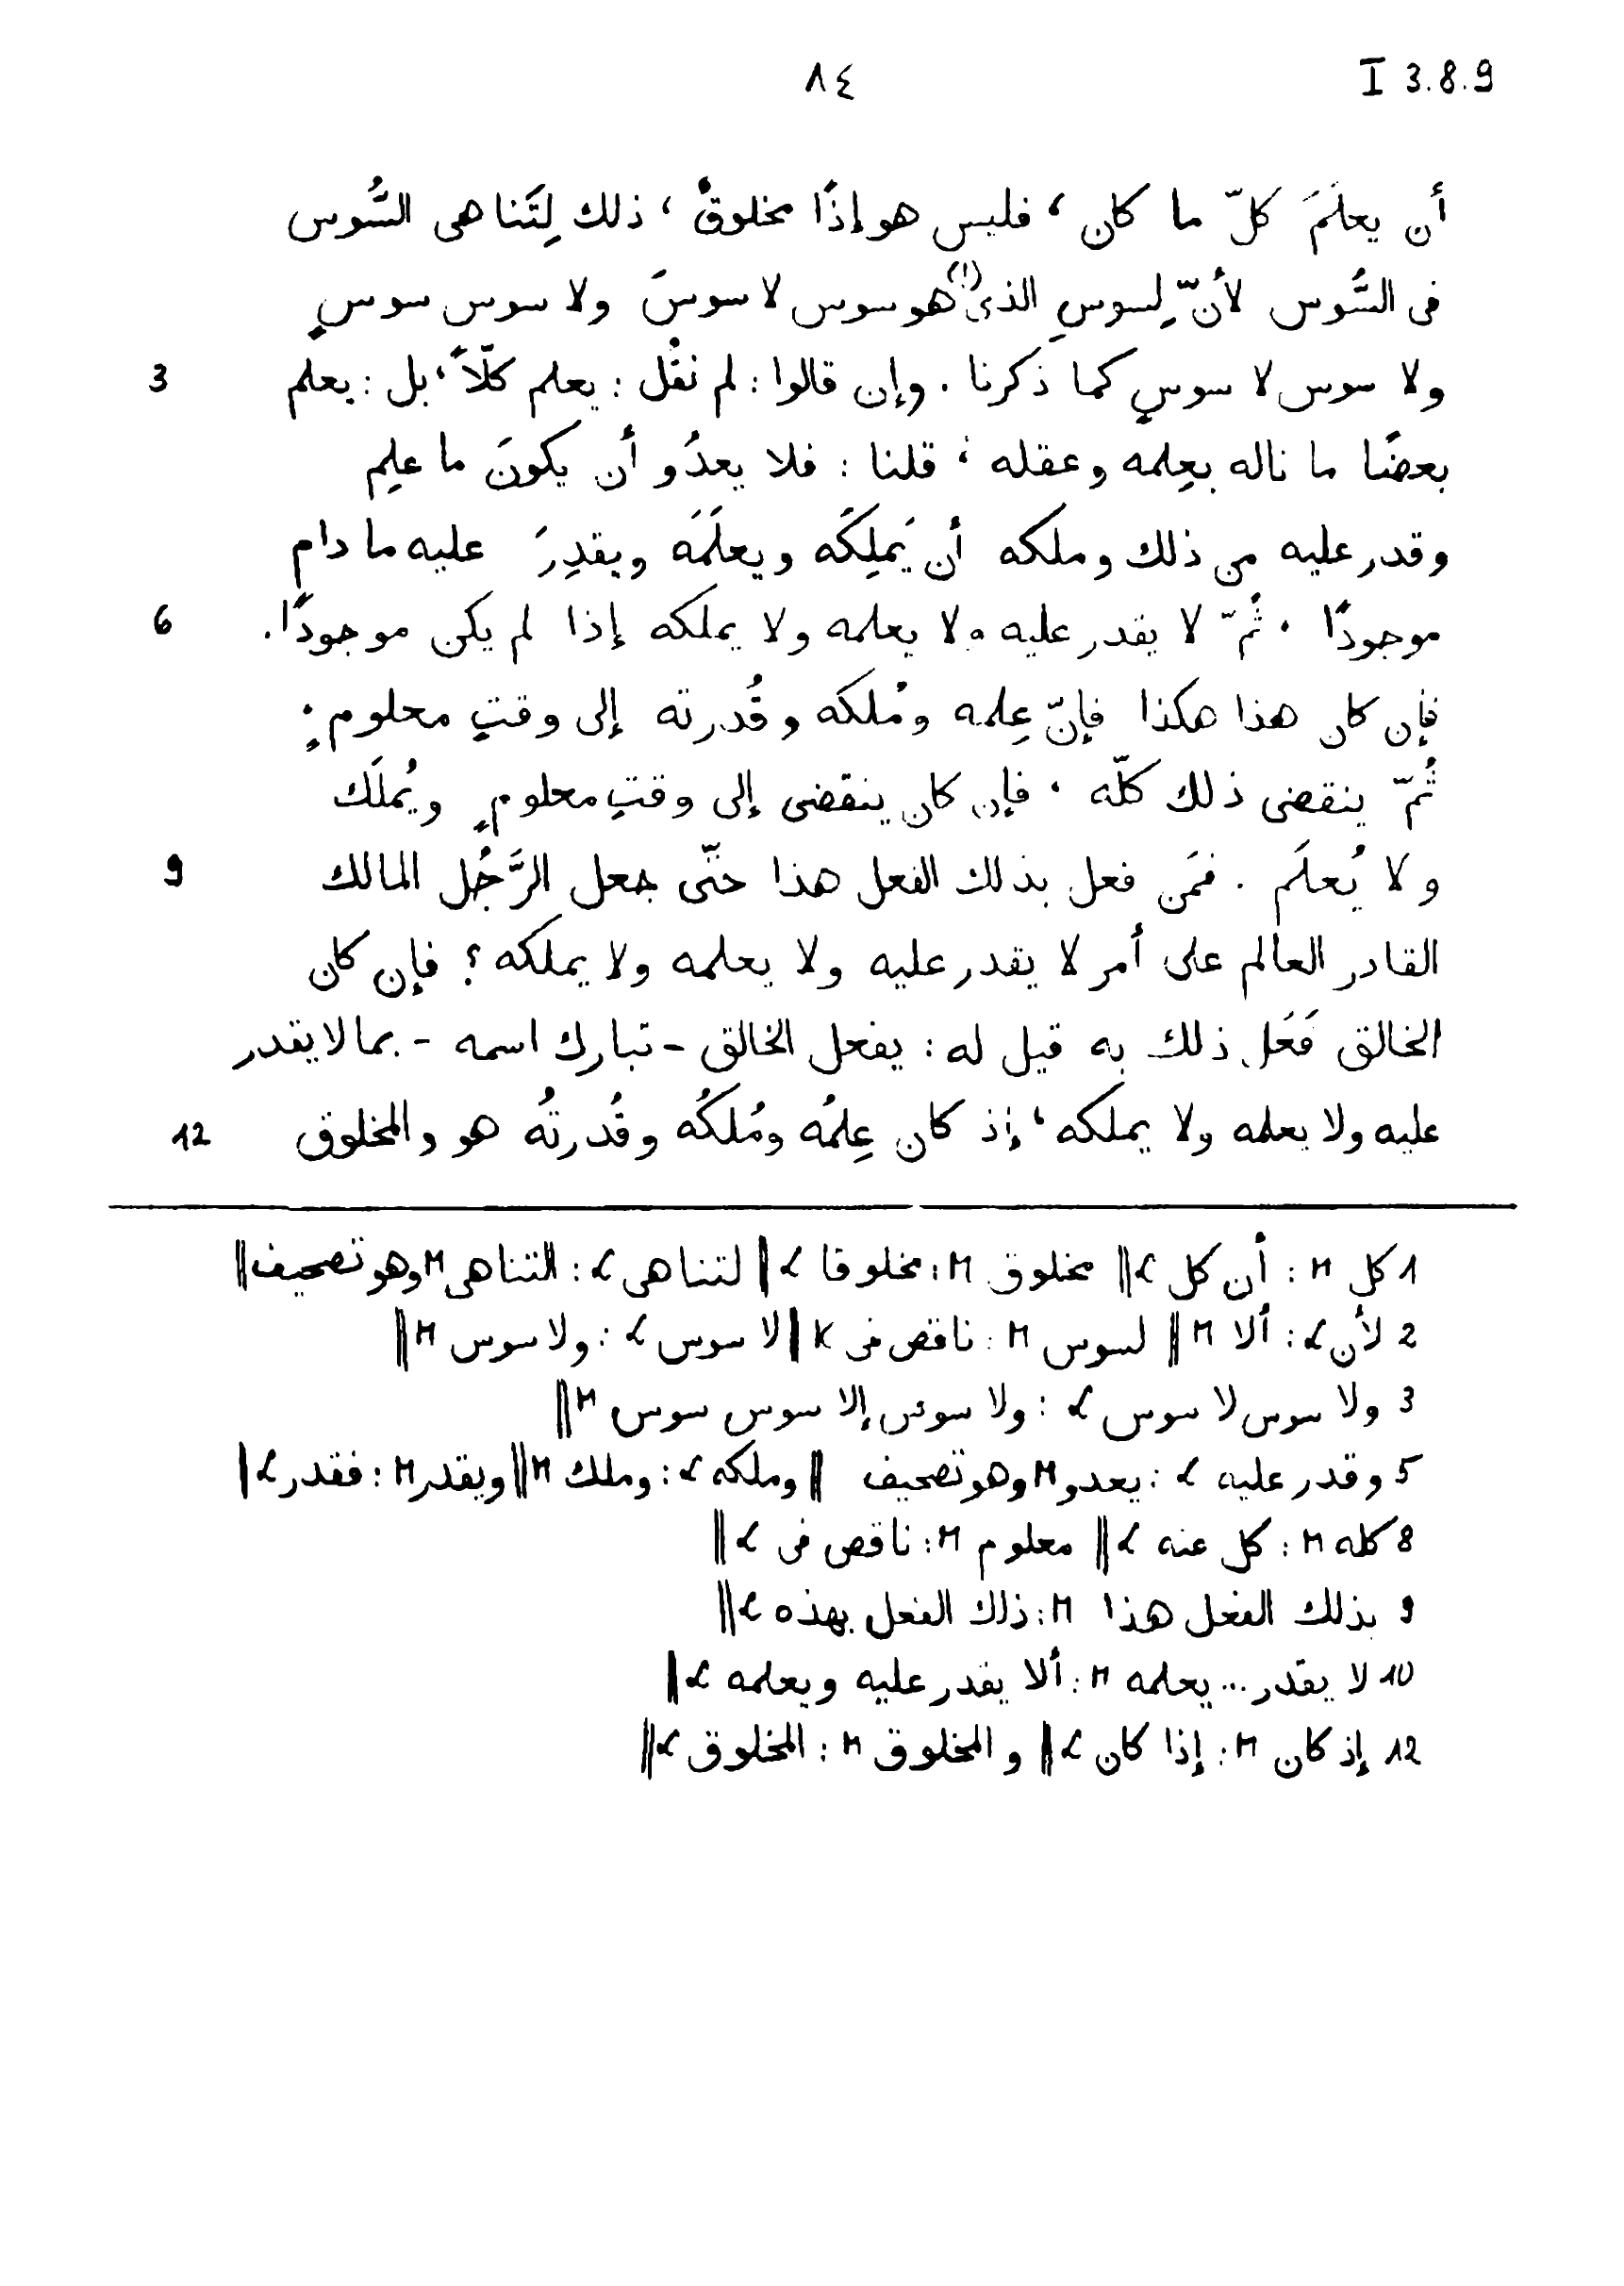 I 3.8.9
٨٤
أن يعلَمَ كلّ ما كان، فليس هو إذًا مخلوقٌ، ذلك لِتَناهى السُّوس
فى السُّوس لأنّ لِسوسِ الذى (١) هو سوس لا سوسَ ولا سوس سوسٍ
3 ولا سوس لا سوسٍ كما ذكرنا. وإن قالوا: لم نقُل: يعلم كلّاً، بل: يعلم
بعضًا ما ناله بعِلمه وعقله، قلنا: فلا يعدُو أن يكونَ ما علِم
وقدر عليه من ذلك وملكه أن يَملِكَه ويعلَمَه ويقدِرَ عليه ما دام
6 موجودًا. ثُمّ لا يقدر عليه ولا يعلمه ولا يملكه إذا لم يكن موجودًا.
فإن كان هذا هكذا فإنّ عِلمه ومُلكه وقُدرته إلى وقتٍ معلومٍ.
ثُمّ ينقضى ذلك كلّه. فإن كان ينقضى إلى وقتٍ معلومٍ ويُملَك
9 ولا يُعلَم. فمَن فعل بذلك الفعل هذا حتّى جعل الرَّجُل المالك
القادر العالم على أمر لا يقدر عليه ولا يعلمه ولا يملكه؟ فإن كان
الخالق فَعَل ذلك به قيل له: يفعل الخالق - تبارك اسمه - بما لا يقدر
12 عليه ولا يعلمه ولا يملكه، إذ كان عِلمُه ومُلكُه وقُدرتُه هو والمخلوق
1 كل M: أن كل L || مخلوق M: مخلوقا L || لتناهى L: التناهى M وهو تصحيف ||
2 لأن L: ألا M || لسوس M: ناقص فى K || لا سوس L: ولا سوس M ||
3 ولا سوس لا سوس L: ولا سوس إلا سوس سوس M ||
5 وقدر عليه L: يعدو M وهو تصحيف || وملكه L: وملك M || ويقدر M: فقدر L ||
8 كله M: كل عنه L || معلوم M: ناقص فى L ||
9 بذلك الفعل هذا M: ذلك الفعل بهذه L ||
10 لا يقدر... يعلمه M: ألا يقدر عليه ويعلمه L ||
12 إذ كان M: إذا كان L || والمخلوق M: المخلوق L ||